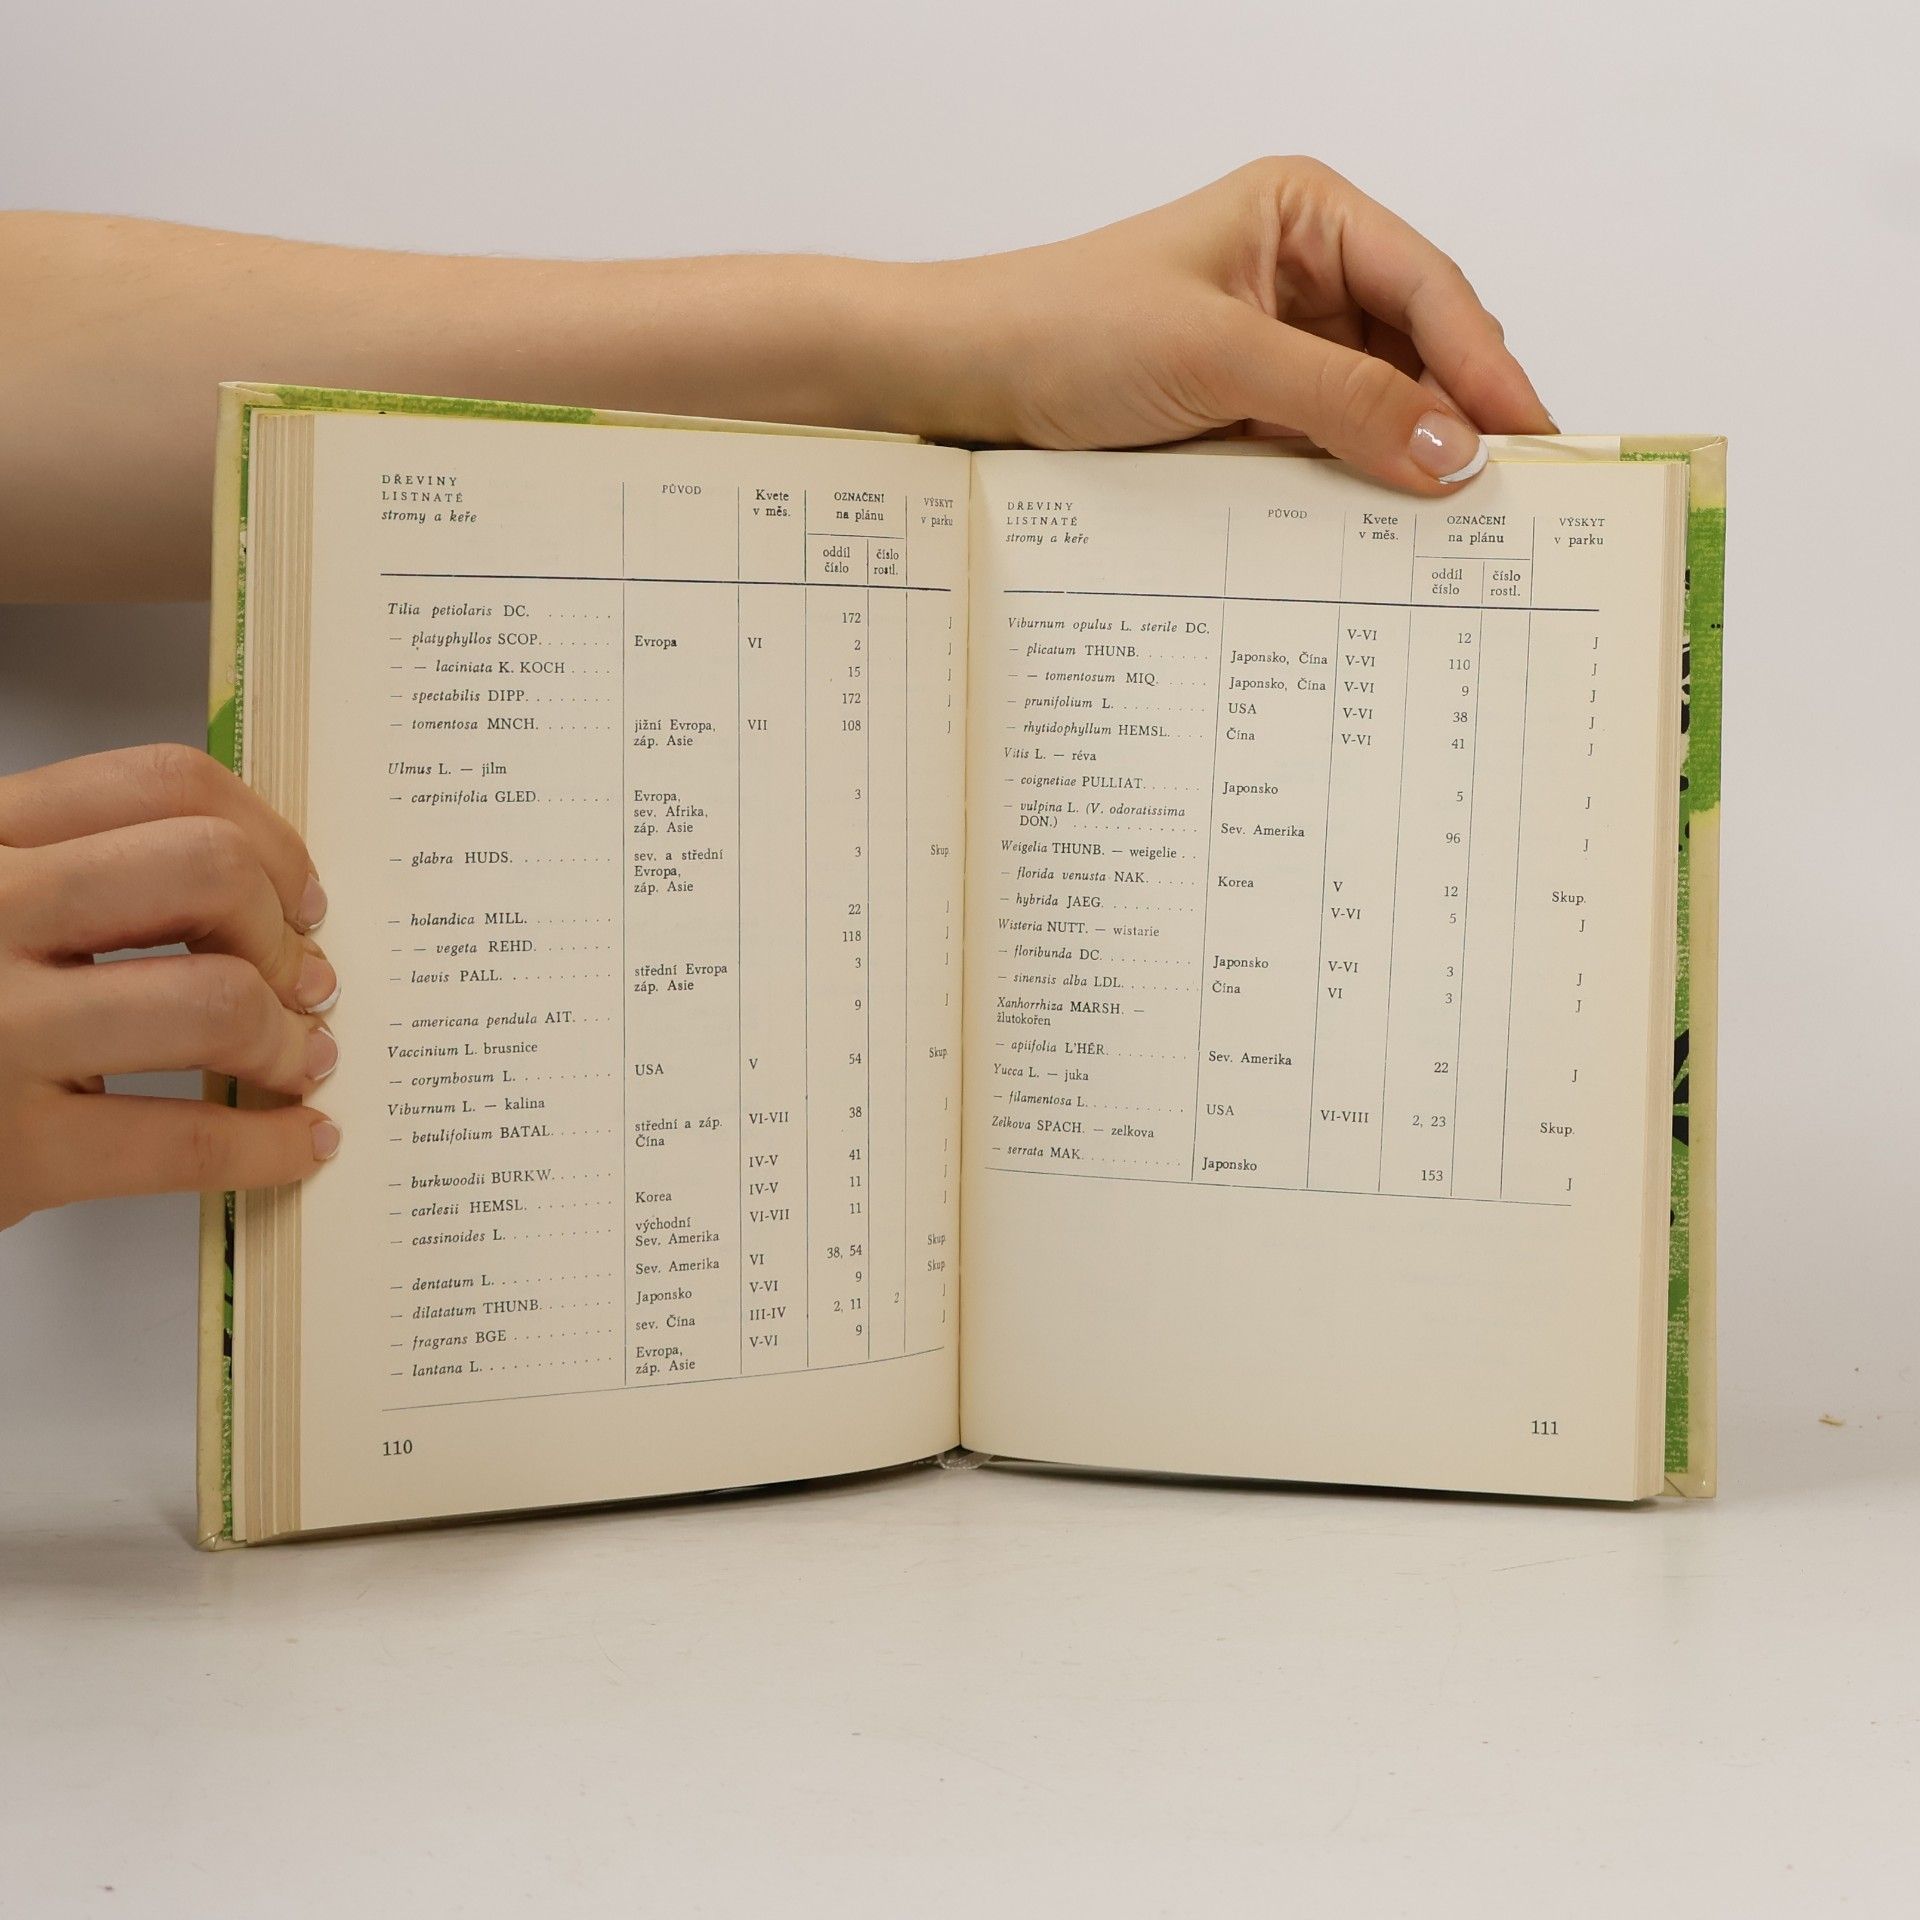 DŘEVINY
LISTNATÉ
stromy a keře
PŮVOD
Kvete
v měs.
OZNAČENÍ
na plánu
oddíl
číslo
číslo
rostl.
VÝSKYT
v parku
Tilia petiolaris DC. . . . . . . 172 J
— platyphyllos SCOP. . . . . . . Evropa VI 2 J
— — laciniata K. KOCH . . . . 15 J
— spectabilis DIPP. . . . . . . . 172 J
— tomentosa MNCH. . . . . . . jižní Evropa, VII 108 J
záp. Asie
Ulmus L. — jilm
— carpinifolia GLED. . . . . . . Evropa, 3
sev. Afrika,
záp. Asie
— glabra HUDS. . . . . . . . . sev. a střední 3 Skup.
Evropa,
záp. Asie
— holandica MILL. . . . . . . . 22 J
— — vegeta REHD. . . . . . . 118 J
— laevis PALL. . . . . . . . . . střední Evropa 3 J
záp. Asie
— americana pendula AIT. . . . 9 J
Vaccinium L. brusnice
— corymbosum L. . . . . . . . . USA V 54 Skup.
Viburnum L. — kalina
— betulifolium BATAL. . . . . . střední a záp. VI-VII 38 J
Čína
— burkwoodii BURKW. . . . . . IV-V 41 J
— carlesii HEMSL. . . . . . . . Korea IV-V 11 J
— cassinoides L. . . . . . . . . . východní VI-VII 11 J
Sev. Amerika
— dentatum L. . . . . . . . . . . Sev. Amerika VI 38, 54 Skup.
— dilatatum THUNB. . . . . . . Japonsko V-VI 9 Skup.
— fragrans BGE . . . . . . . . . sev. Čína III-IV 2, 11 2 J
— lantana L. . . . . . . . . . . . Evropa, V-VI 9 J
záp. Asie
110
DŘEVINY
LISTNATÉ
stromy a keře
PŮVOD
Kvete
v měs.
OZNAČENÍ
na plánu
oddíl
číslo
číslo
rostl.
VÝSKYT
v parku
Viburnum opulus L. sterile DC. V-VI 12 J
— plicatum THUNB. . . . . . . . Japonsko, Čína V-VI 110 J
— — tomentosum MIQ. . . . . Japonsko, Čína V-VI 9 J
— prunifolium L. . . . . . . . . . USA V-VI 38 J
— rhytidophyllum HEMSL. . . . Čína V-VI 41 J
Vitis L. — réva
— coignetiae PULLIAT. . . . . . Japonsko 5 J
— vulpina L. (V. odoratissima
DON.) . . . . . . . . . . . . Sev. Amerika 96 J
Weigelia THUNB. — weigelie . .
— florida venusta NAK. . . . . Korea V 12 Skup.
— hybrida JAEG. . . . . . . . . V-VI 5 J
Wisteria NUTT. — wistarie
— floribunda DC. . . . . . . . . Japonsko V-VI 3 J
— sinensis alba LDL. . . . . . . Čína VI 3 J
Xanhorrhiza MARSH. —
žlutokořen
— apiifolia L'HÉR. . . . . . . . Sev. Amerika 22 J
Yucca L. — juka
— filamentosa L. . . . . . . . . . USA VI-VIII 2, 23 Skup.
Zelkova SPACH. — zelkova
— serrata MAK. . . . . . . . . . Japonsko 153 J
111